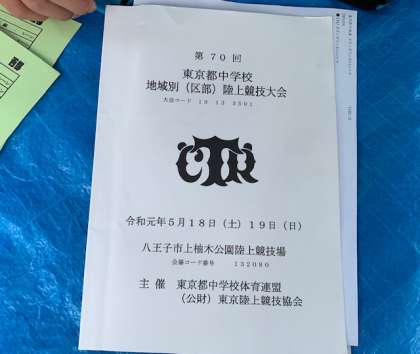 第 70 回
東京都中学校
地域別（区部）陸上競技大会
大会コード 19 13 3501
CTR
令和元年5月18日（土）19日（日）
八王子市上柚木公園陸上競技場
会場コード番号 132080
主 催 東京都中学校体育連盟
（公財）東京陸上競技協会